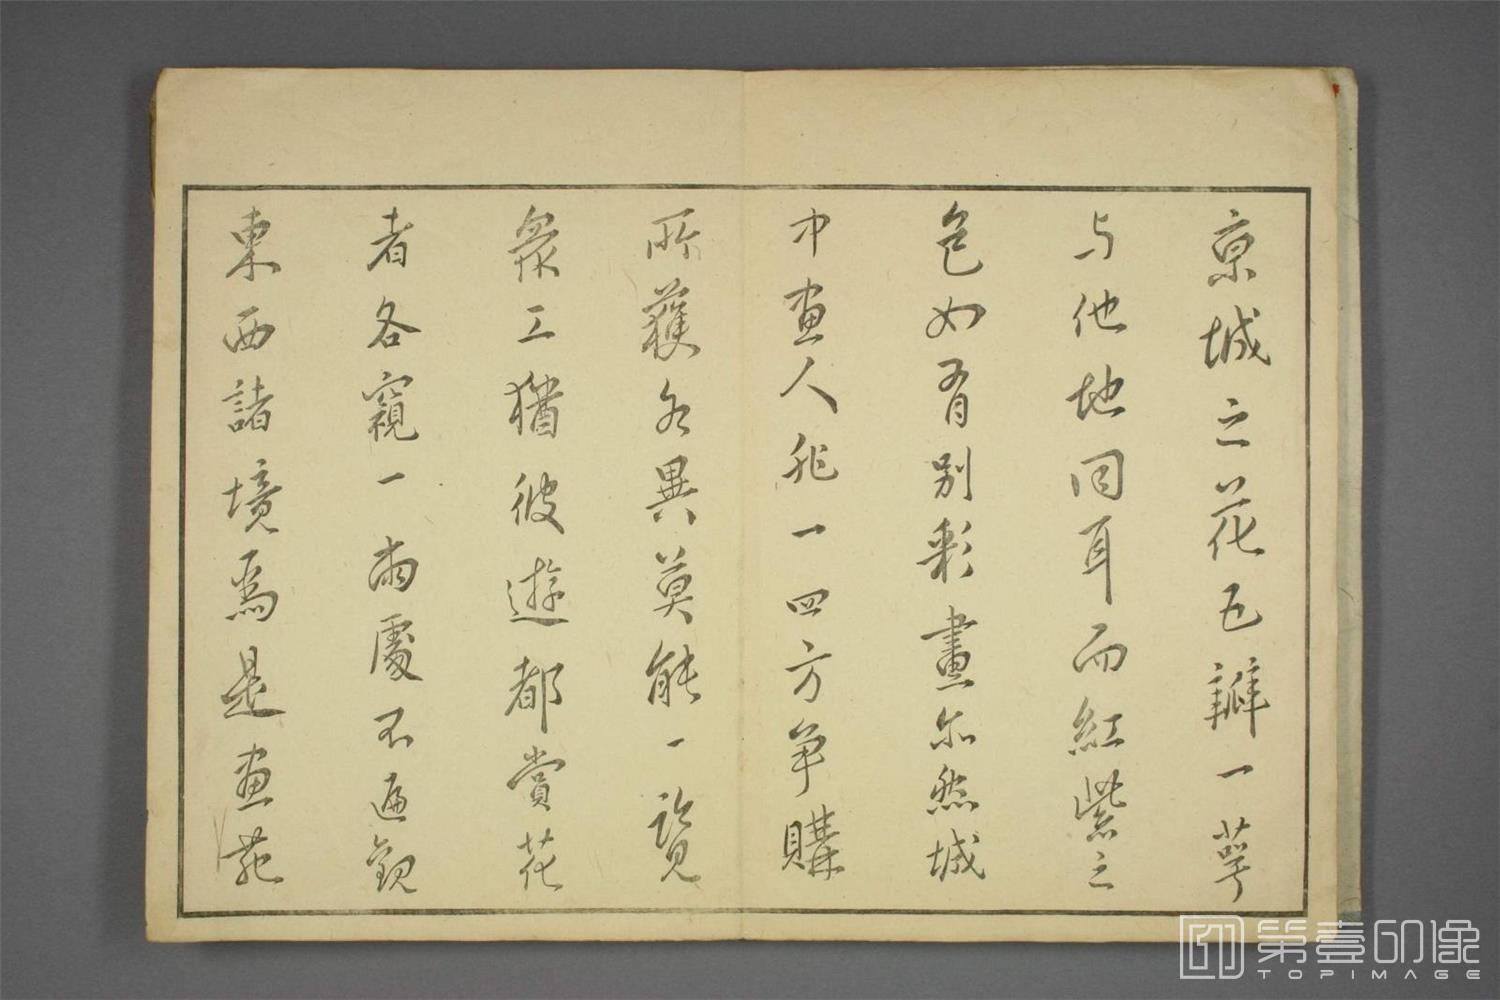 京城之花五瓣一萼
与他地同耳而紅紫之
色如有別彩畫亦然城
中画人非一四方争購
所獲各異莫能一覧
衆工猶彼遊都賞花
者各窺一両處不遍観
東西諸境焉是画苑
第壹印像
TOPIMAGE